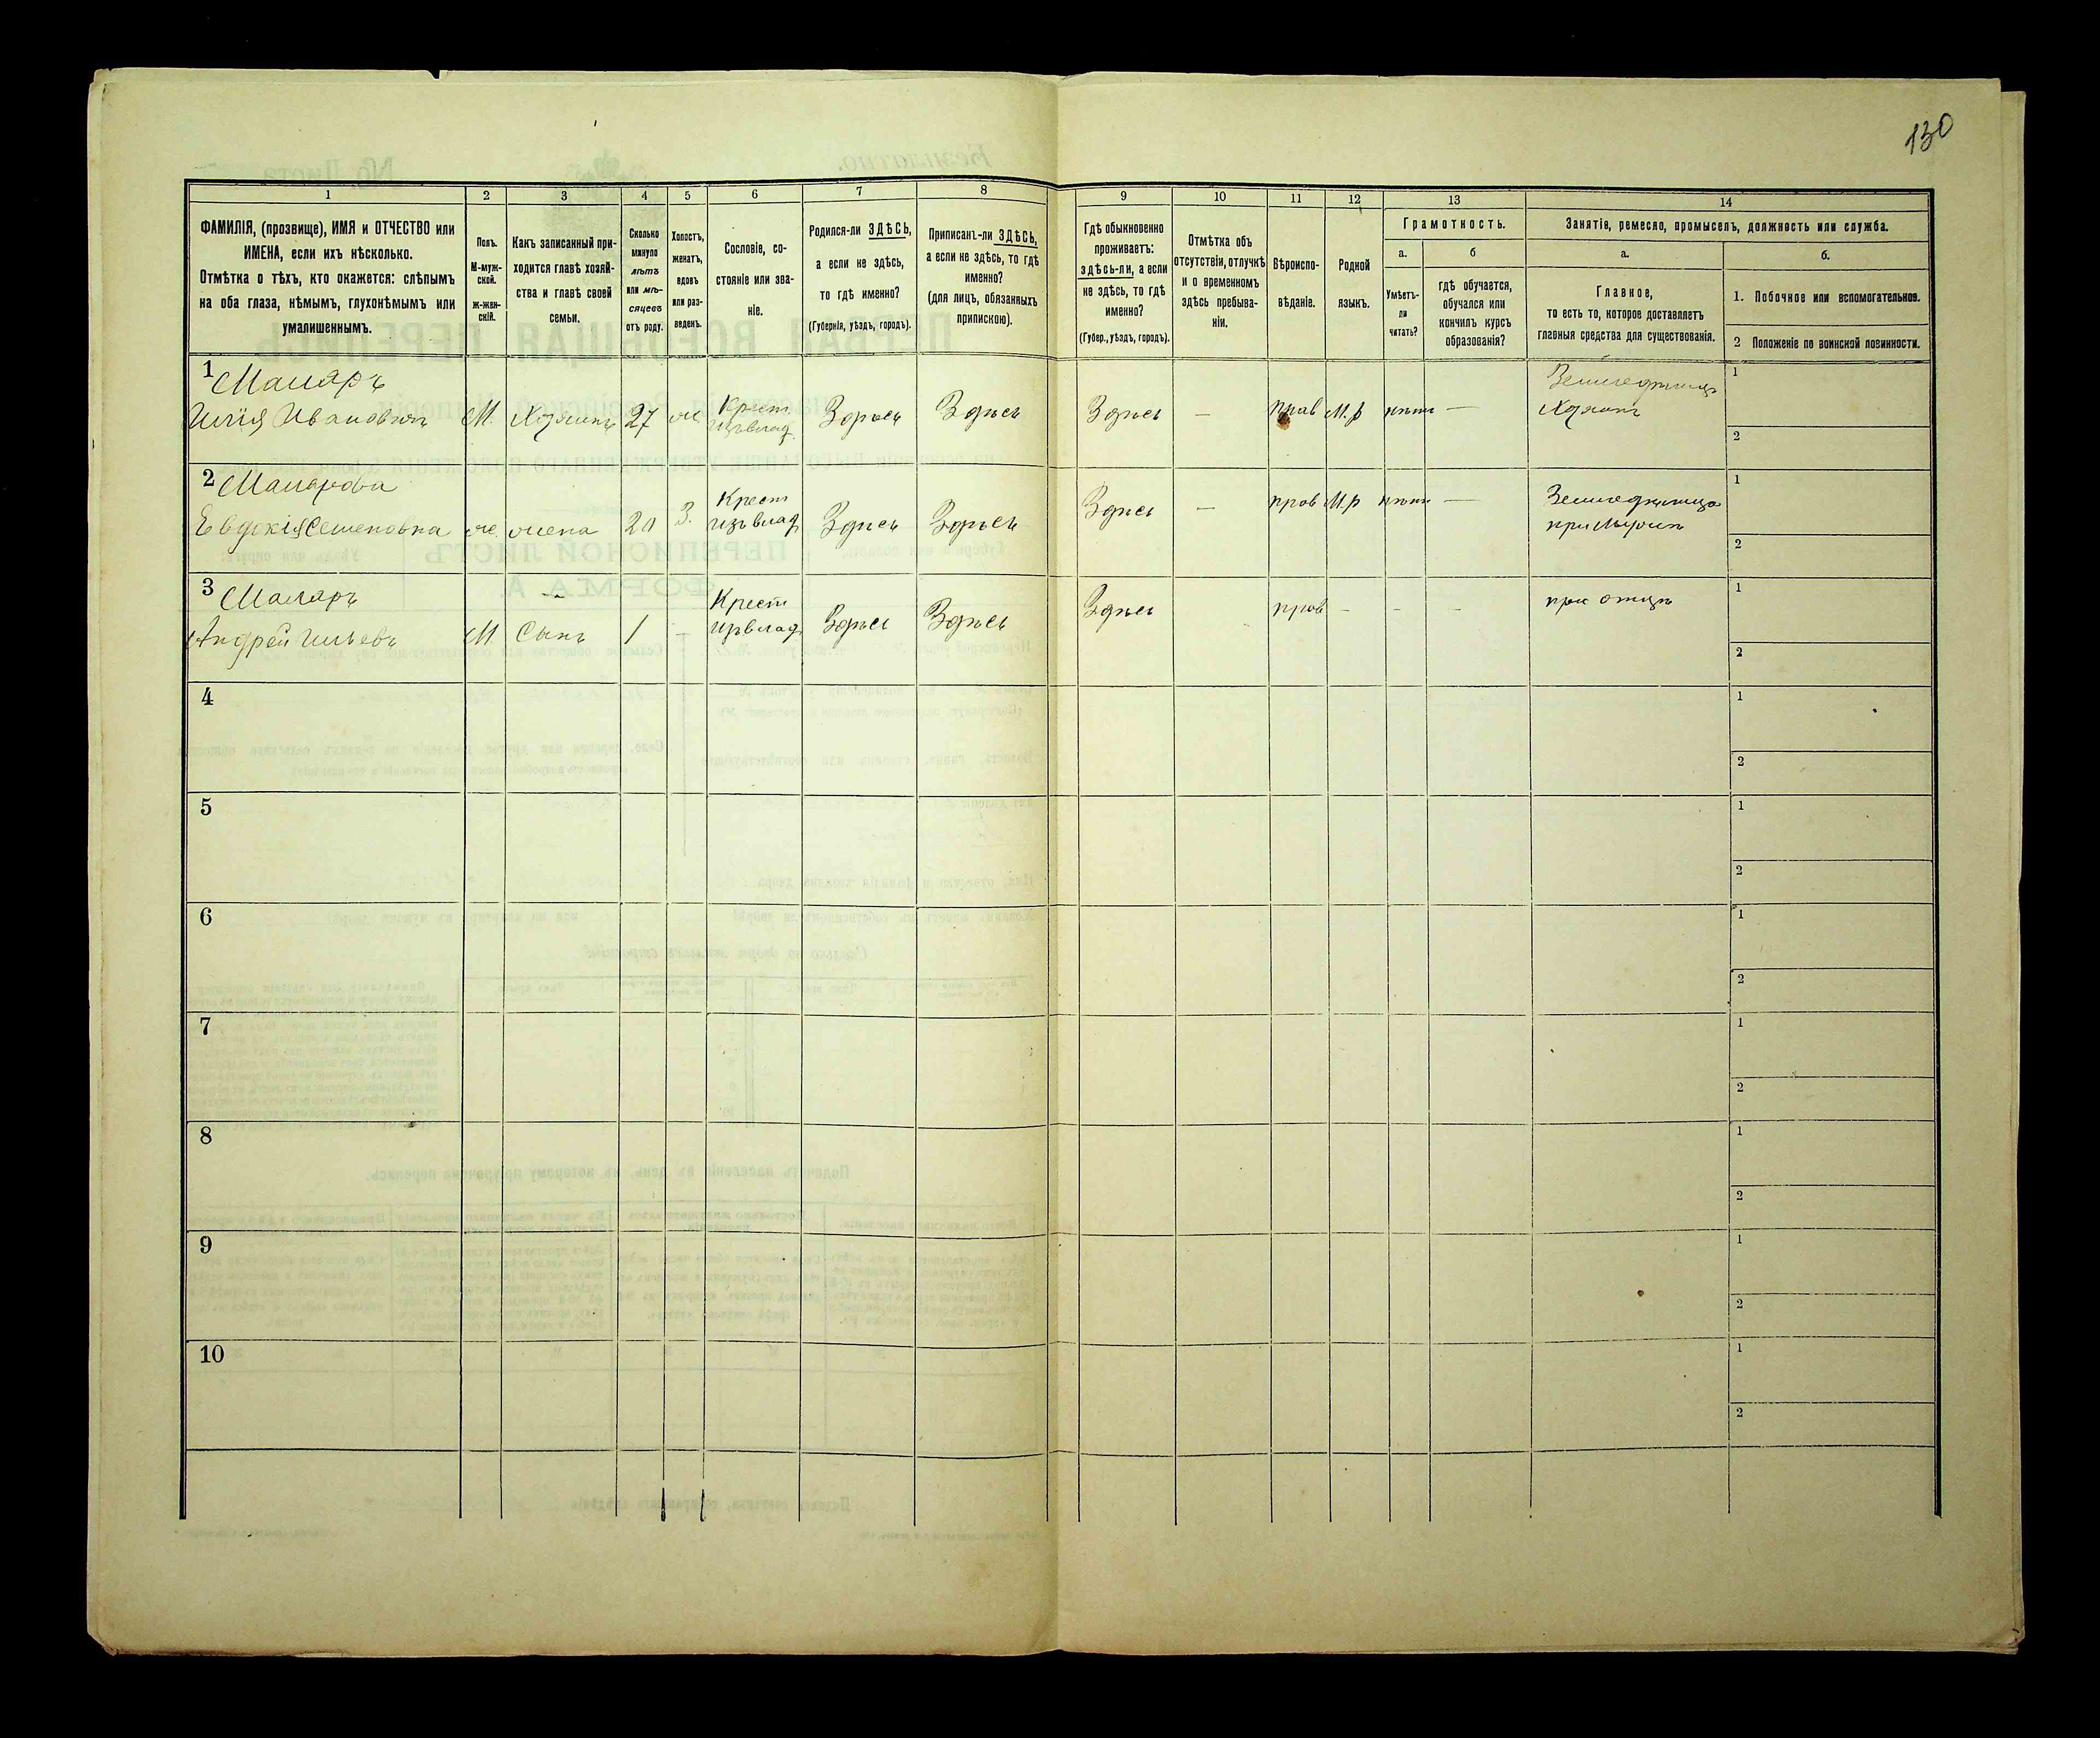 130
1
2
3
4
5
6
7
8
9
10
11
12
13
14
ФАМИЛІЯ, (прозвище), ИМЯ и ОТЧЕСТВО или
ИМЕНА, если ихъ нѣсколько.
Отмѣтка о тѣхъ, кто окажется: слѣпымъ
на оба глаза, нѣмымъ, глухонѣмымъ или
умалишеннымъ.
Полъ.
М-муж-
ской.
Ж-жен-
скій.
Какъ записанный при-
ходится главѣ хозяй-
ства и главѣ своей
семьи.
Сколько
минуло
лѣтъ
или мѣ-
сяцевъ
отъ роду.
Холостъ,
женатъ,
вдовъ
или раз-
веденъ.
Сословіе, со-
стояніе или зва-
ніе.
Родился-ли ЗДѢСЬ,
а если не здѣсь,
то гдѣ именно?
(Губернія, уѣздъ, городъ).
Приписанъ-ли ЗДѢСЬ,
а если не здѣсь, то гдѣ
именно?
(для лицъ, обязанныхъ
припискою).
Гдѣ обыкновенно
проживаетъ:
здѣсь-ли, а если
не здѣсь, то гдѣ
именно?
(Губер., уѣздъ, городъ).
Отмѣтка объ
отсутствіи, отлучкѣ
и о временномъ
здѣсь пребыва-
ніи.
Вѣроиспо-
вѣданіе.
Родной
языкъ.
Грамотность.
а.
б
Умѣетъ-
ли
читать?
гдѣ обучается,
обучался или
кончилъ курсъ
образованія?
Занятіе, ремесло, промыселъ, должность или служба.
а.
б.
Главное,
то есть то, которое доставляетъ
главныя средства для существованія.
1. Побочное или вспомогательное.
2 Положеніе по воинской повинности.
1 Маляръ Земледѣлецъ 1
Илія Ивановичъ М. Хозяинъ 27 ж. Крест. изъ влад. Здѣсь Здѣсь Здѣсь — прав М.р нѣтъ — Хозяинъ
2
2 Малярова 1
Евдокія Семеновна ж. жена 20 З. Крест изъ влад Здѣсь Здѣсь Здѣсь — прав М.р нѣтъ — Земледѣлица
при мужѣ
2
3 Маляръ 1
Андрей Ильевъ М. Сынъ 1 – Крест изъ влад. Здѣсь Здѣсь Здѣсь прав – – – при отцѣ
2
4 1
2
5 1
2
6 1
2
7 1
2
8 1
2
9 1
2
10 1
2